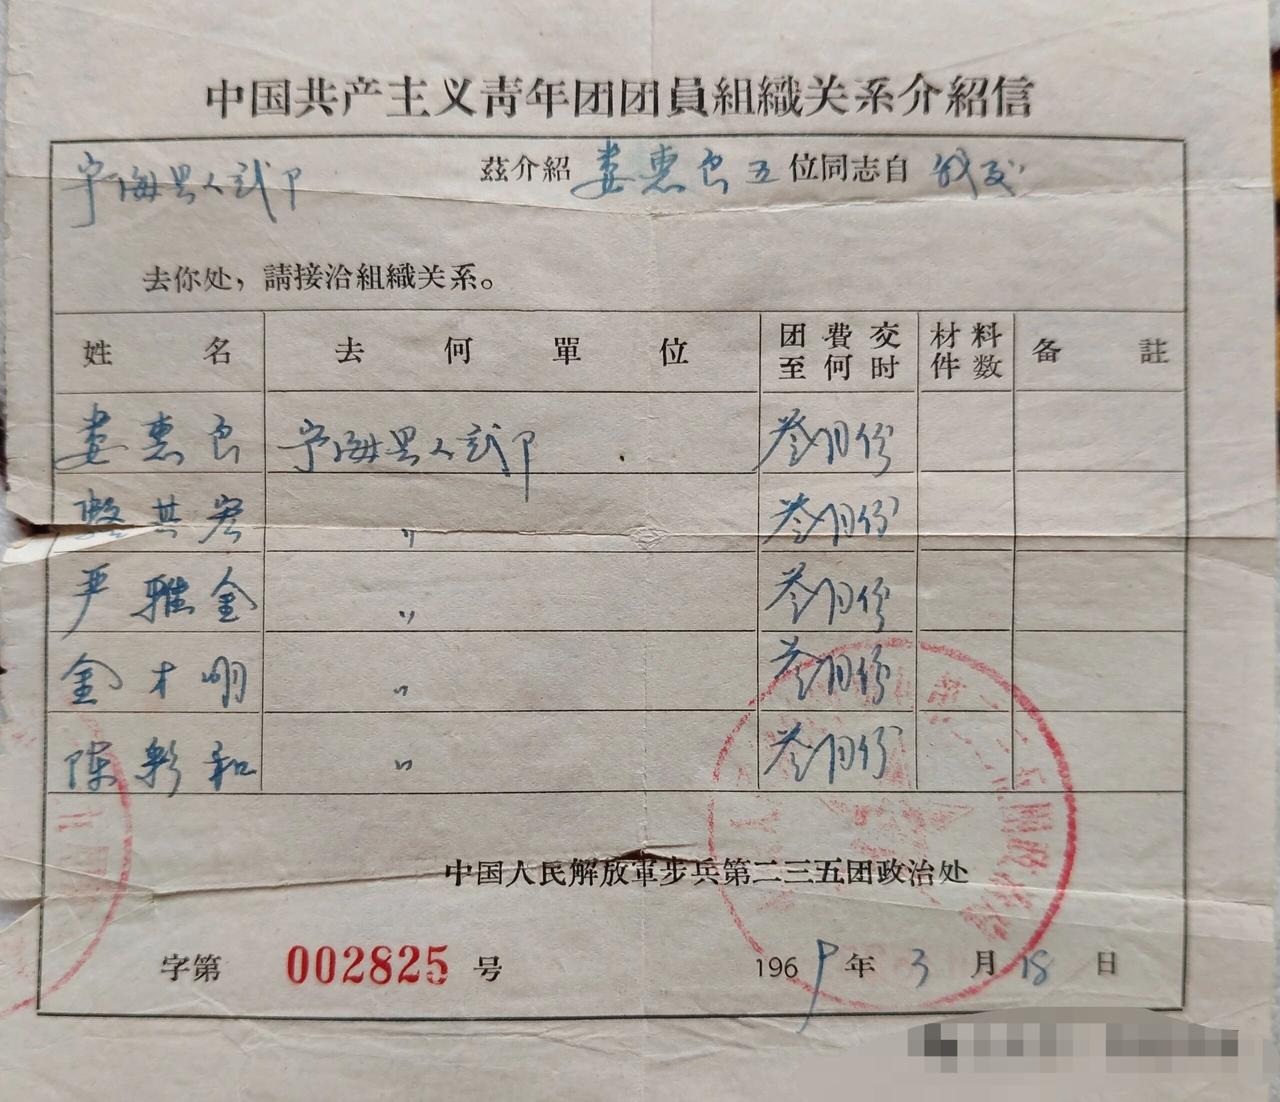 中国共产主义青年团团員組織关系介紹信
宁海县人武卩 茲介紹 娄惠良五 位同志自 我及
去你处，請接洽組織关系。
姓名 去何單位 团費交至何时 材料件数 备註
娄惠良 宁海县人武卩 叁月份
共宏 〃 叁月份
严雅金 〃 叁月份
金才明 〃 叁月份
陈彩和 〃 叁月份
中国人民解放軍步兵第二三五团政治处
字第 002825 号 1969年3月18日